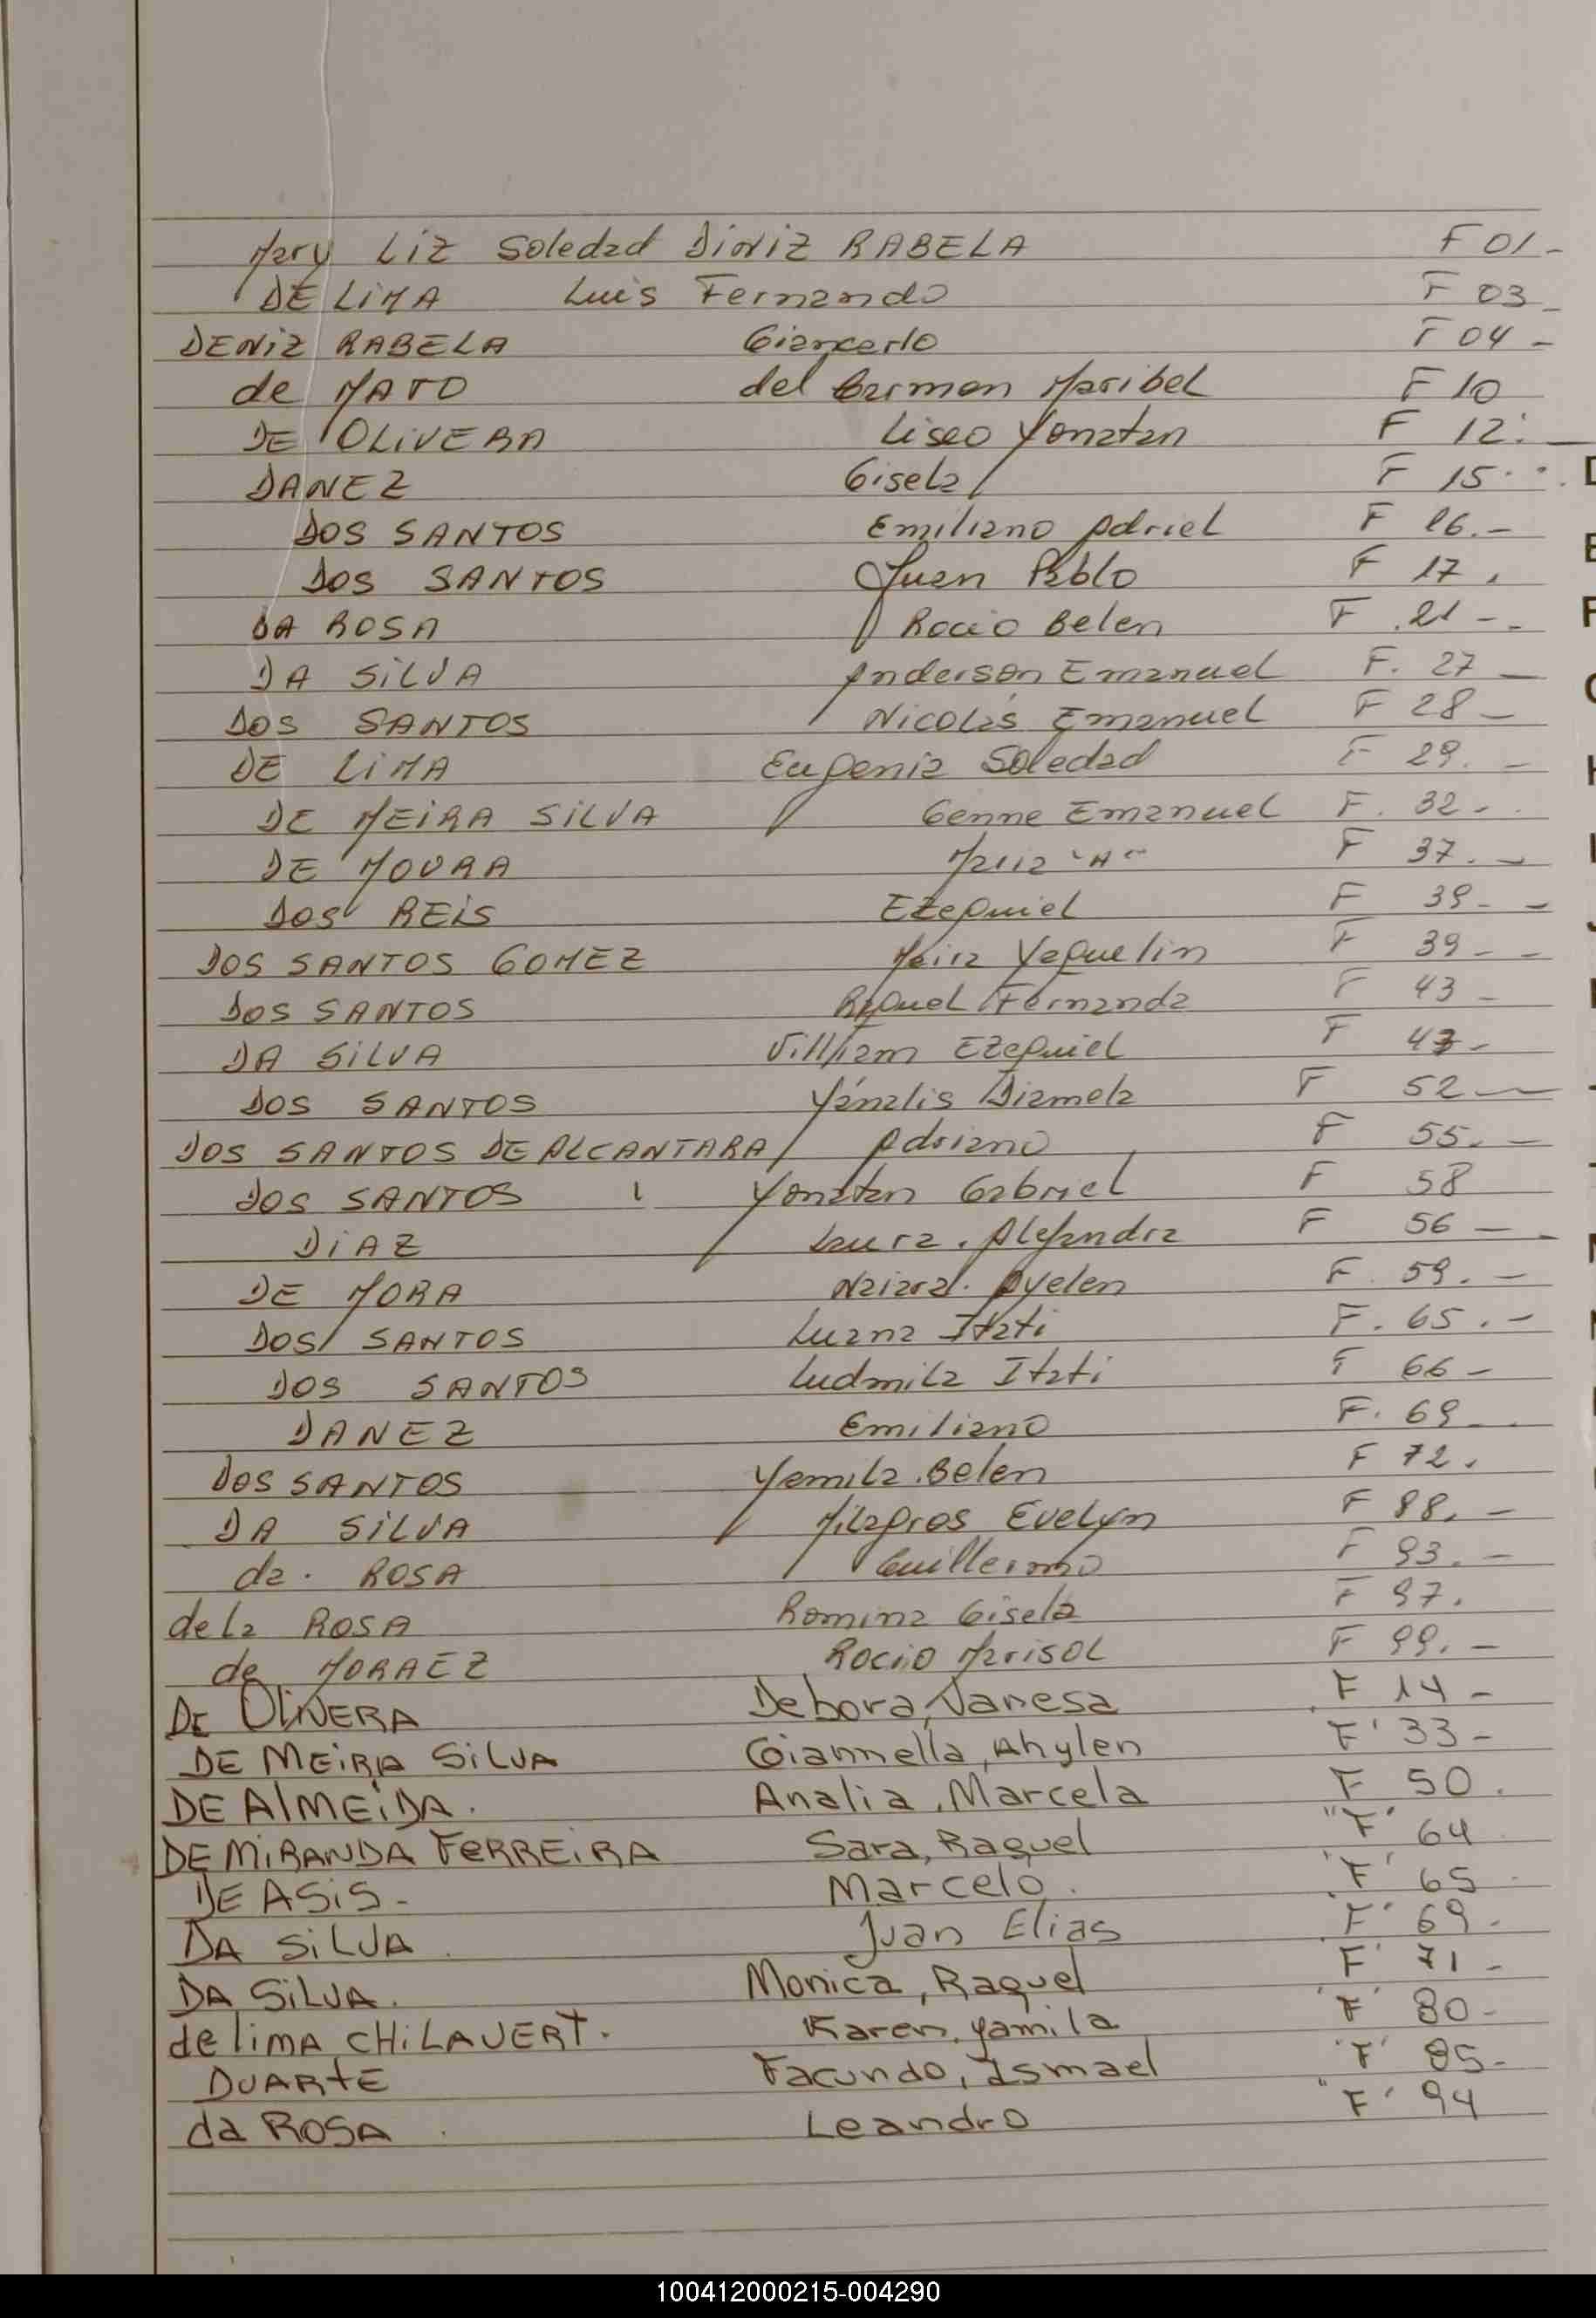 Mary Liz Soledad DiNiZ RABELA F 01-
DE LiMA Luis Fernando F 03-
DENiZ RABELA Giancarlo F 04-
de MATO del Carmen Maribel F 10
DE OLiVERA Liseo Yonatan F 12.-
DANEZ Gisela F 15.
DOS SANTOS Emiliano Adriel F 16.-
DOS SANTOS Juan Pablo F 17.
DA ROSA Rocio Belen F 21-
DA SiLVA Anderson Emanuel F. 27-
DOS SANTOS Nicolás Emanuel F 28-
DE LiMA Eugenia Soledad F 29.-
DE MEiRA SiLVA Genne Emanuel F. 32-
DE MOURA Maria "A" F 37.-
DOS REiS Ezequiel F 39-
DOS SANTOS GOMEZ Yaquelin F 39-
DOS SANTOS Raquel Fernanda F 43-
DA SiLVA Villiam Ezequiel F 43-
DOS SANTOS Yánalis Diamela F 52-
DOS SANTOS DE ALCANTARA Adriano F 55.-
DOS SANTOS Yonatan Gabriel F 58
DiAZ Laura. Alejandra F 56-
DE MORA Naiara. Ayelen F. 59.-
DOS SANTOS Luana Itati F. 65.-
DOS SANTOS Ludmila Itati F 66-
DANEZ Emiliano F. 69-
DOS SANTOS Yamila.Belen F 72.
DA SiLVA Milagros Evelyn F 88.-
da. ROSA Guillermo F 93.-
dela ROSA Romina Gisela F 97.
de MORAEZ Rocio Marisol F 99.-
DE OLiVERA Debora, Vanesa F 14-
DE MEiRA SiLVA Giannella, Ahylen F' 33-
DE AlMEiDA. Analia, Marcela F 50.
DE MiRANDA FeRREiRA Sara, Raquel "F' 64
DE ASiS- Marcelo. 'F' 65
DA SiLVA. Juan Elias 'F' 69-
DA SiLVA. Monica, Raquel F' 71-
de limA CHiLAVERT. Karen, yamila 'F' 80-
DUARtE Facundo, Ismael 'F' 85-
da ROSA. Leandro "F' 94
D
E
F
100412000215-004290